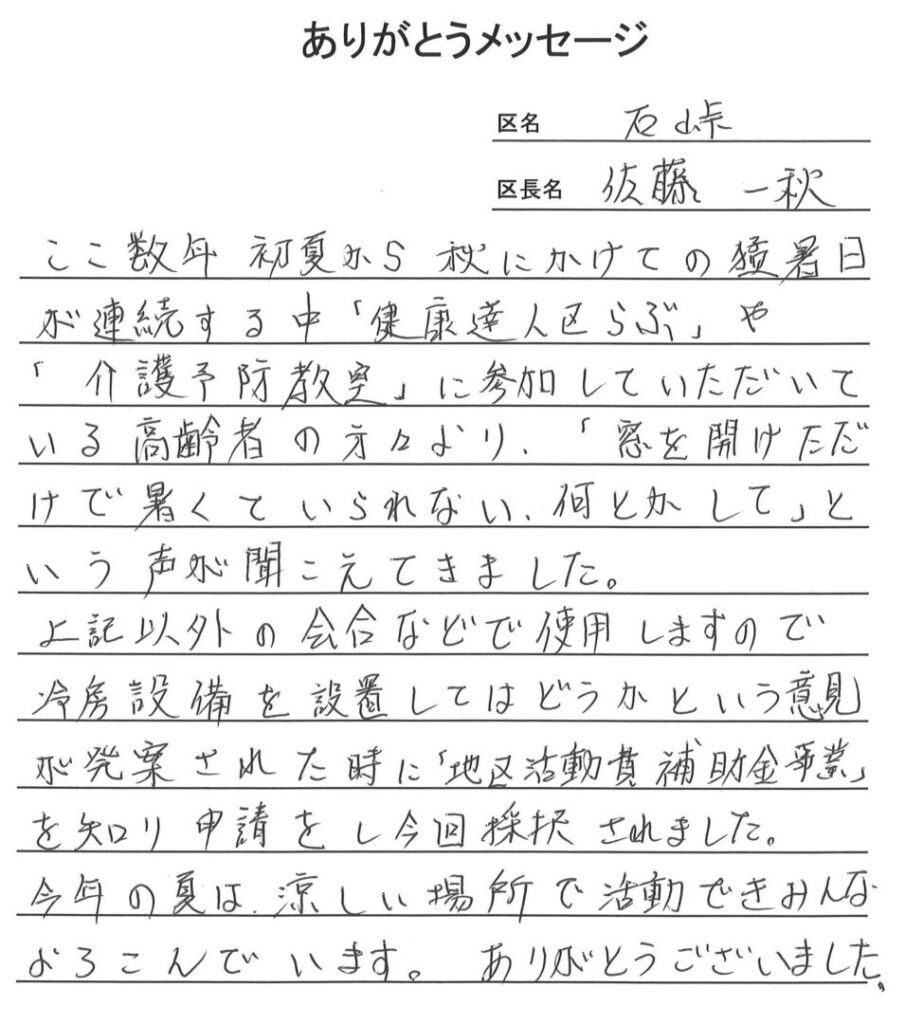 ありがとうメッセージ
区名 石峠
区長名 佐藤 一秋
ここ数年 初夏から 秋にかけての猛暑日
が連続する中「健康達人区らぶ」や
「介護予防教室」に参加していただいて
いる高齢者の方々より、「窓を開けただ
けで暑くていられない、何とかして」と
いう声が聞こえてきました。
上記以外の会合などで使用しますので
冷房設備を設置してはどうかという意見
が発案された時に「地区活動費補助金事業」
を知り申請をし今回採択されました。
今年の夏は、涼しい場所で活動できみんな
よろこんでいます。 ありがとうございました。